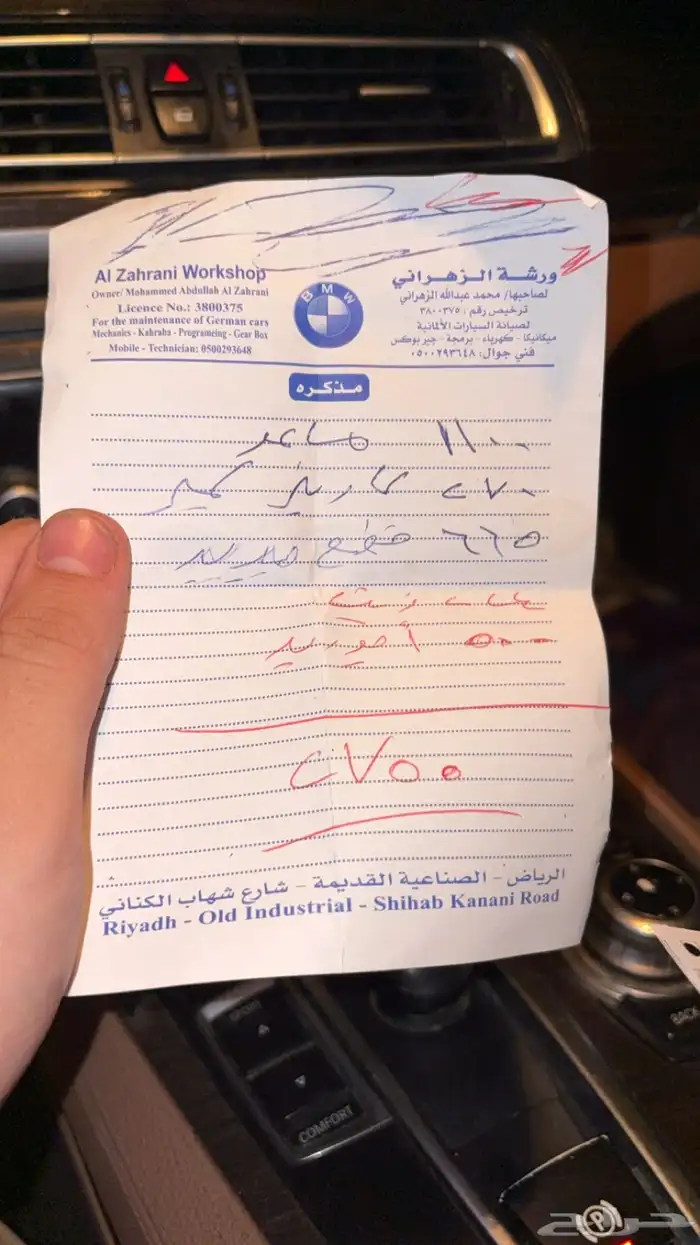 Al Zahrani Workshop
Owner/ Mohammed Abdullah Al Zahrani
Licence No.: 3800375
For the maintenance of German cars
Mechanics - Kahraba - Programeing - Gear Box
Mobile - Technician: 0500293648
BMW
ورشة الزهراني
لصاحبها/ محمد عبدالله الزهراني
ترخيص رقم : ٣٨٠٠٣٧٥
لصيانة السيارات الألمانية
ميكانيكا - كهرباء - برمجة - جيربوكس
فني جوال: ٠٥٠٠٢٩٣٦٤٨
مذكره
١١٠٠ مساعد
٢٧٠
٦٦٥ قطع
٥٠٠
٢٧٥٥
الرياض - الصناعية القديمة - شارع شهاب الكناني
Riyadh - Old Industrial - Shihab Kanani Road
BACK
SPORT
COMFORT
P
حراج